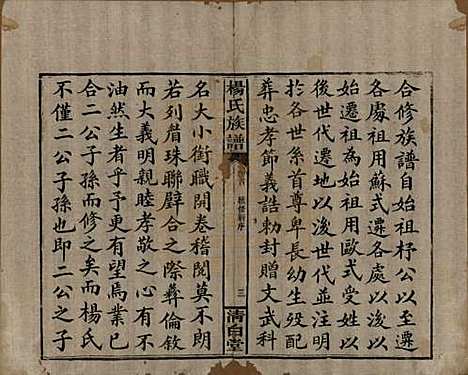 合修族譜自始祖杼公以上遷
各處祖用蘇式遷各處以後以
始遷祖為始祖用歐式受姓以
後世代遷地以後世代並列
於各世系首尊卑長幼生歿配
葬忠孝節義誥勅封贈文武科
楊氏族譜
卷首
三
清白堂
名大小銜職開卷稽閱莫不朗
若列眉珠聯璧合之際彝倫敘
而大義明親睦孝敬之心有不
油然生者乎予更有望焉業已
合二公子孫而修之矣而楊氏
不僅二公子孫也即二公之子